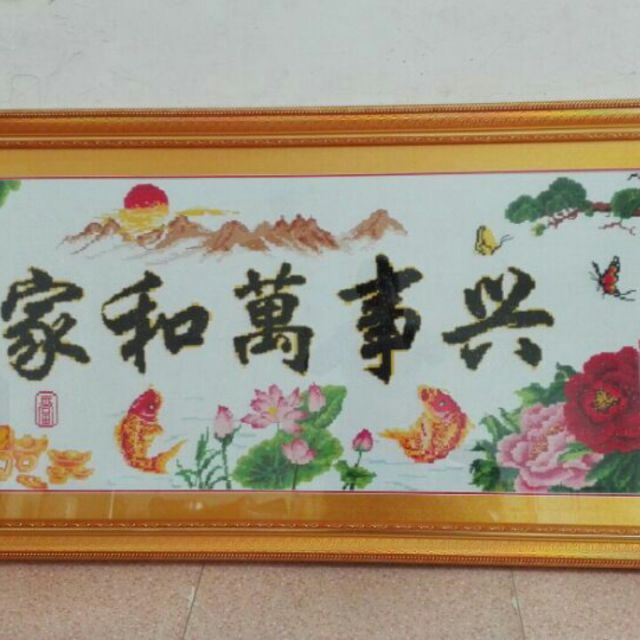 家和萬事兴